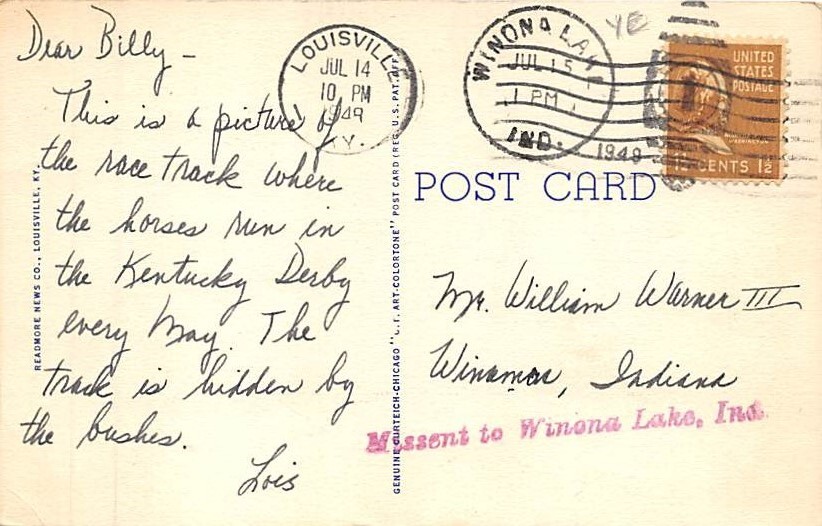 Dear Billy –
This is a picture of
the race track where
the horses run in
the Kentucky Derby
every May. The
track is hidden by
the bushes.
Lois
READMORE NEWS CO., LOUISVILLE, KY.
GENUINE CURTEICH-CHICAGO "C.T. ART-COLORTONE" POST CARD (REG. U.S. PAT. OFF.
LOUISVILLE
JUL 14
10 PM
1949
KY.
WINONA LAKE
JUL 15
1 PM
IND.
1949
YE
UNITED
STATES
POSTAGE
WASHINGTON
1½ CENTS 1½
POST CARD
Mr. William Warner III
Winamac, Indiana
Missent to Winona Lake, Ind.